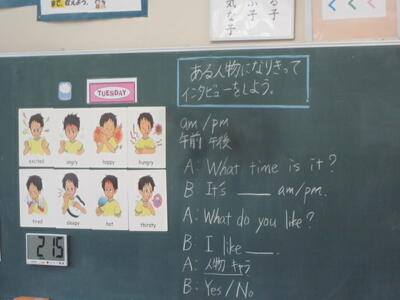 る子
ふ子
気な子
く く く
TUESDAY
ある人物になりきって
インタビューをしよう。
am/pm
午前 午後
A: What time is it?
B It's ___ am/pm.
A: What do you like?
B: I like ___.
A: 人物 キャラ
B: Yes/No
excited
angry
happy
hungry
tired
sleepy
hot
thirsty
215